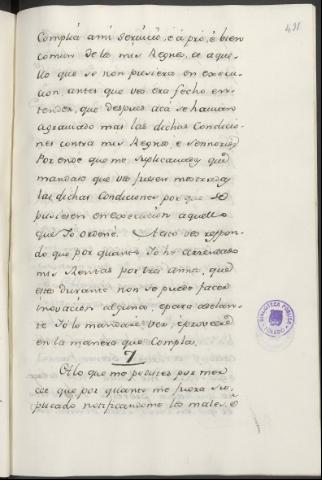 431
Complia à mi servicio, è à pró, è bien
comun de los mis Regnos, ca aque-
llo que se non pusiera en execu-
cion antes que vos era fecho en-
tender, que despues acá se havian
agraviado mas las dichas Condicio-
nes contra mis Regnos, è Señorios
Por ende que me suplicavades que
mandase que vos fuesen mostradas
las dichas Condiciones por que se
pusiesen en execucion aquello
que Yo ordené. A esto vos respon-
do que por quanto Yo he arrendado
mis Rentas por tres años, que
esto durante non se puede facer
inovacion alguna, è para adelan-
te Yo lo mandaré ver, è proveeré
en la manera que Compla.
7
A lo que me pedistes por mer-
ced que por quanto me fuera su-
plicado notificandome los males, è
BIBLIOTECA PUBLICA
TOLEDO